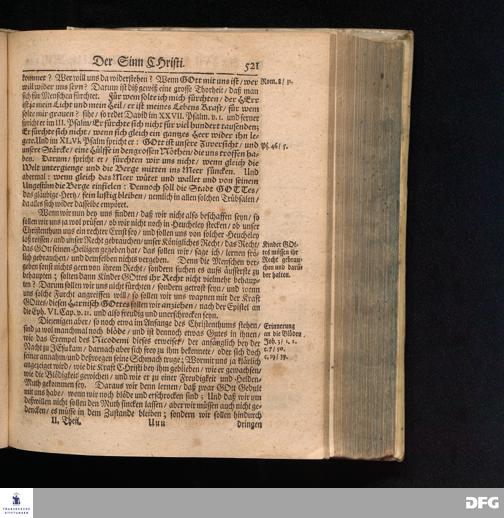 Der Sinn CHristi. 521
kommet? Wer will uns da widerstehen? Wenn GOtt mit uns ist/ wer
will wider uns seyn? Darum ist diß gewiß eine grosse Thorheit/ daß man
sich für Menschen fürchtet. Für wem solte ich mich fürchten/ der HErr
ist ja mein Licht und mein Heil/ er ist meines Lebens Krafft/ für wem
solte mir grauen? sihe/ so redet David im XXVII. Psalm. v. 1. und ferner
spricht er im III. Psalm/ Er fürchte sich nicht für viel hundert tausenden;
Er fürchte sich nicht/ wenn sich gleich ein gantzes Heer wider ihn le-
gete. Und im XLVI. Psalm spricht er: GOtt ist unsere Zuversicht/ und
unsere Stärcke/ eine Hülffe in den grossen Nöthen/ die uns troffen ha-
ben. Darum/ spricht er/ fürchten wir uns nicht/ wenn gleich die
Welt untergienge und die Berge mitten ins Meer süncken. Und
abermal: wenn gleich das Meer wütet und wallet und von seinem
Ungestüm die Berge einfielen: Dennoch soll die Stadt GOTTes/
das gläubige Hertz/ fein lustig bleiben/ nemlich in allen solchen Trübsalen/
da alles sich wider dasselbe empöret.
Wenn wir nun bey uns finden/ daß wir nicht also beschaffen seyn/ so
sollen wir uns ja wol prüfen/ ob wir nicht noch in Heucheley stecken/ ob unser
Christenthum uns ein rechter Ernst sey/ und sollen uns von solcher Heucheley
loß reissen/ und unser Recht gebrauchen/ unser Königliches Recht/ das Recht/
das GOtt seinen Heiligen gegeben hat/ das sollen wir/ sage ich/ lernen frö-
lich gebrauchen/ und demselben nichts vergeben. Denn die Menschen ver-
geben sonst nicht gern von ihrem Recht/ sondern suchen es aufs äusserste zu
behaupten; solten dann Kinder GOttes ihr Recht nicht vielmehr behaup-
ten? Darum sollen wir uns nicht fürchten/ sondern getrost seyn/ und wenn
uns solche Furcht angreiffen will/ so sollen wir uns wapnen mit der Krafft
GOttes/ diesen Harnisch GOttes sollen wir anziehen/ nach der Epistel an
die Eph. VI. Cap. v. 11. und also freudig und unerschrocken seyn.
Diejenigen aber/ so noch etwa im Anfange des Christenthums stehen/
sind ja wol manchmal noch blöde/ und ist dennoch etwas Gutes in ihnen/
wie das Exempel des Nicodemi dieses erweiset/ der anfänglich bey der
Nacht zu JEsu kam/ darnach aber sich frey zu ihm bekennete/ oder sich doch
seiner annahm/ und deßwegen seine Schmach truge; Womit uns ja klärlich
angezeiget wird/ wie die Krafft CHristi bey ihm geblieben/ wie er gewachsen/
wie die Blödigkeit gewichen/ und wie er zu einer Freudigkeit und Helden-
Muth gekommen sey. Daraus wir denn lernen/ daß zwar GOtt Gedult
mit uns habe/ wenn wir noch blöde und erschrocken sind; Und daß wir um
deßwillen nicht sollen den Muth sincken lassen/ aber wir müssen auch nicht ge-
dencken/ es müsse in dem Zustande bleiben; sondern wir sollen hindurch
II. Theil. Uuu dringen
Rom. 8/
Ps. 46/ 5.
Kinder GOt-
tes müssen ihr
Recht gebrau-
chen und darü-
ber halten.
Erinnerung
an die Blöden
Joh. 3/ 1. 2.
c. 7/ 50.
c. 19/ 39.
FRANCKESCHE
STIFTUNGEN
DFG